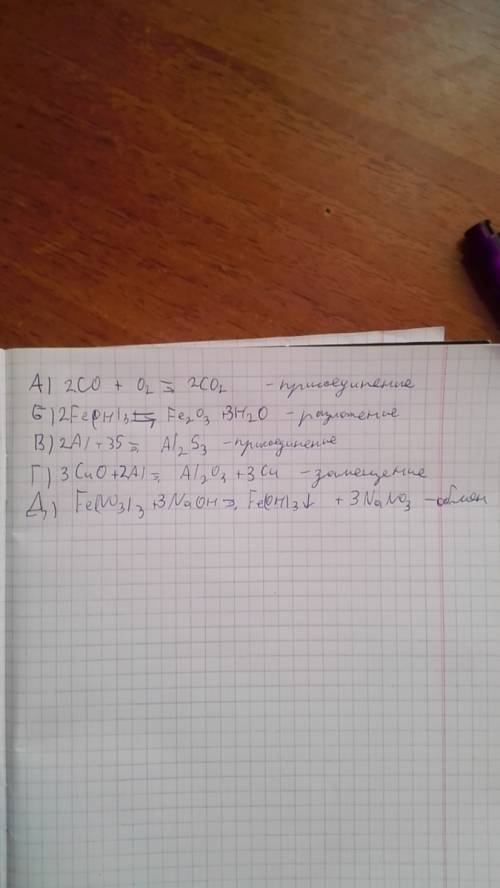 А) 2CO + O₂ = 2CO₂ - присоединение
Б) 2Fe(OH)₃ = Fe₂O₃ + 3H₂O - разложение
В) 2Al + 3S = Al₂S₃ - присоединение
Г) 3CuO + 2Al = Al₂O₃ + 3Cu - замещение
Д) Fe(NO₃)₃ + 3NaOH = Fe(OH)₃↓ + 3NaNO₃ - обмен